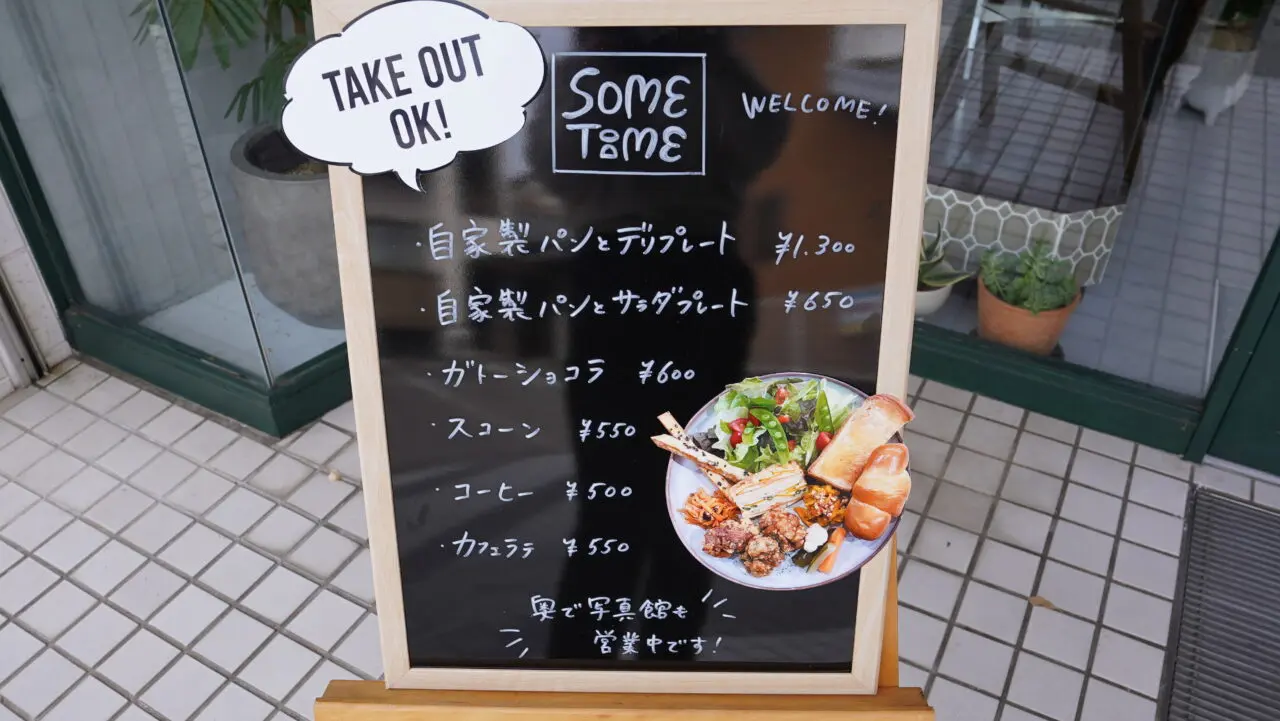 TAKE OUT
OK!
SOME
TIME
WELCOME!
・自家製パンとデリプレート ¥1.300
・自家製パンとサラダプレート ¥650
・ガトーショコラ ¥600
・スコーン ¥550
・コーヒー ¥500
・カフェラテ ¥550
奥で写真館も
営業中です!